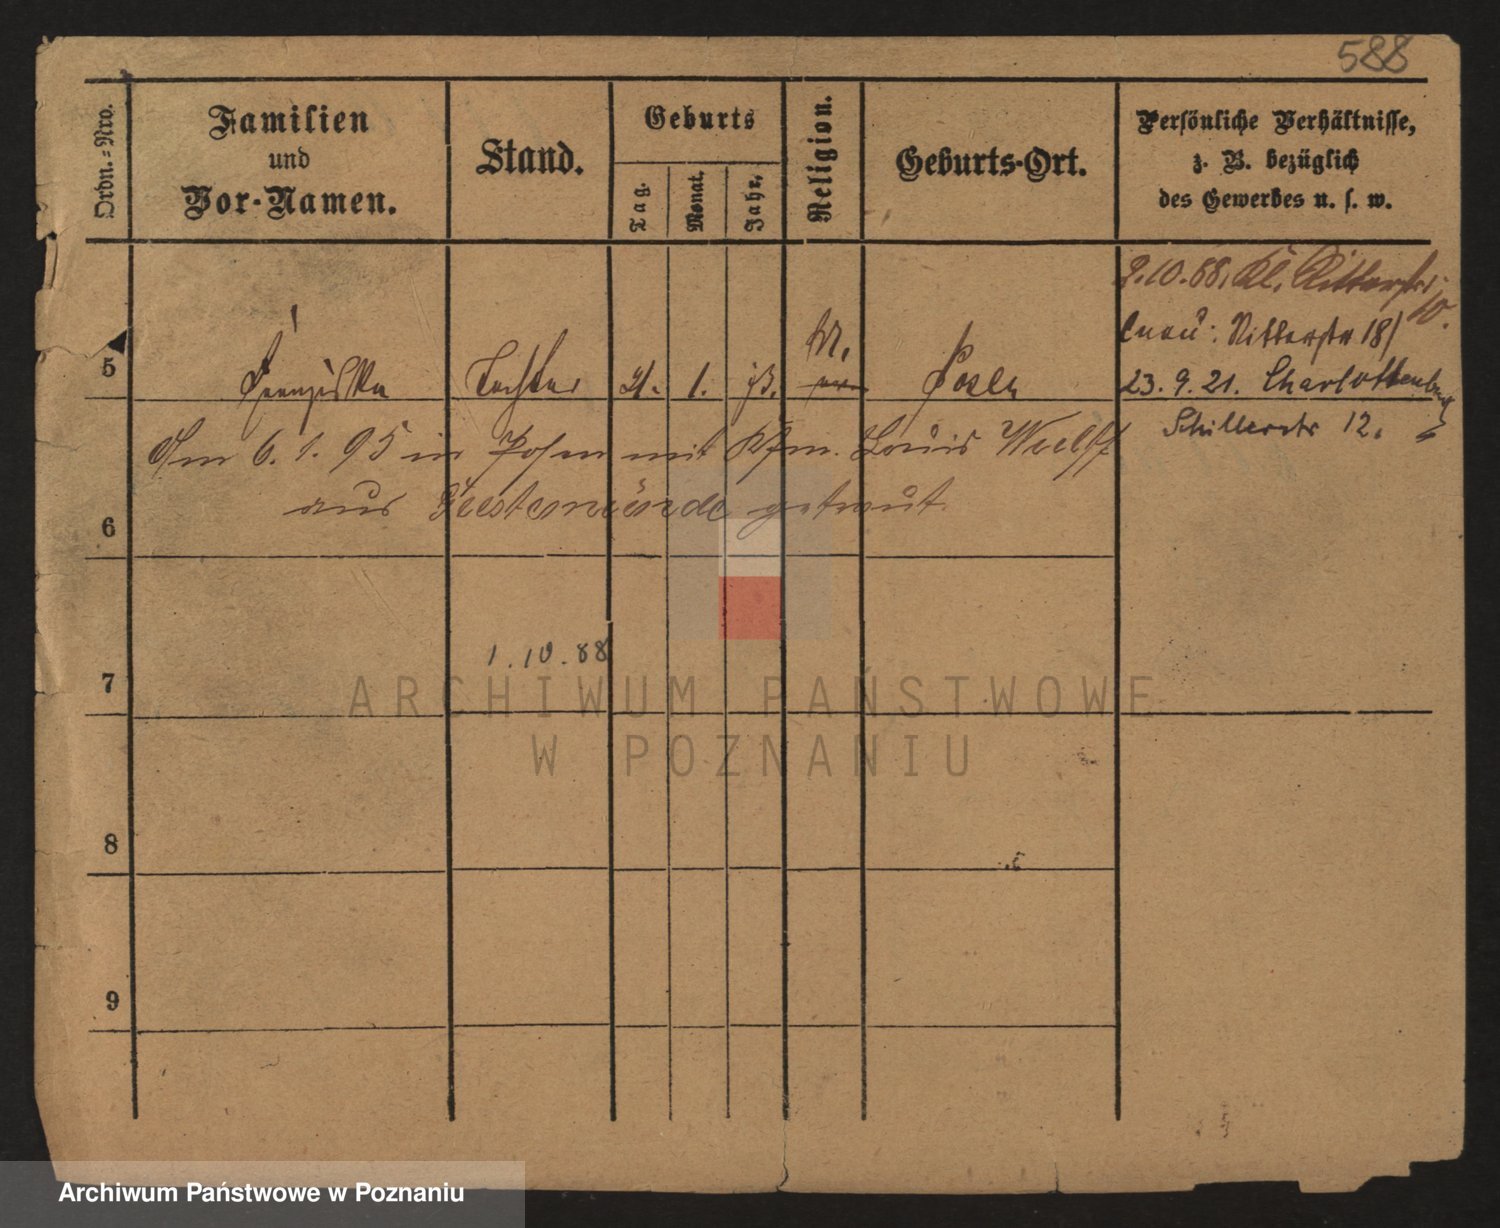 588
Ordn.-Nro.
Familien
und
Vor-Namen.
Stand.
Geburts
Tag.
Monat.
Jahr.
Religion.
Geburts-Ort.
Persönliche Verhältnisse,
z. B. bezüglich
des Gewerbes u. s. w.
2.10.88. Kl. Ritterstr.
10.
Ritterstr 18/
5
Franziska
Tochter
1.
23. 9. 21. Charlottenburg
Schillerstr 12.
Am 6. 1. 95 in Posen mit Kfm. Louis Wulff
aus Geestemünde getraut.
6
1. 10. 88
7
ARCHIWUM PAŃSTWOWE
W POZNANIU
8
9
Archiwum Państwowe w Poznaniu